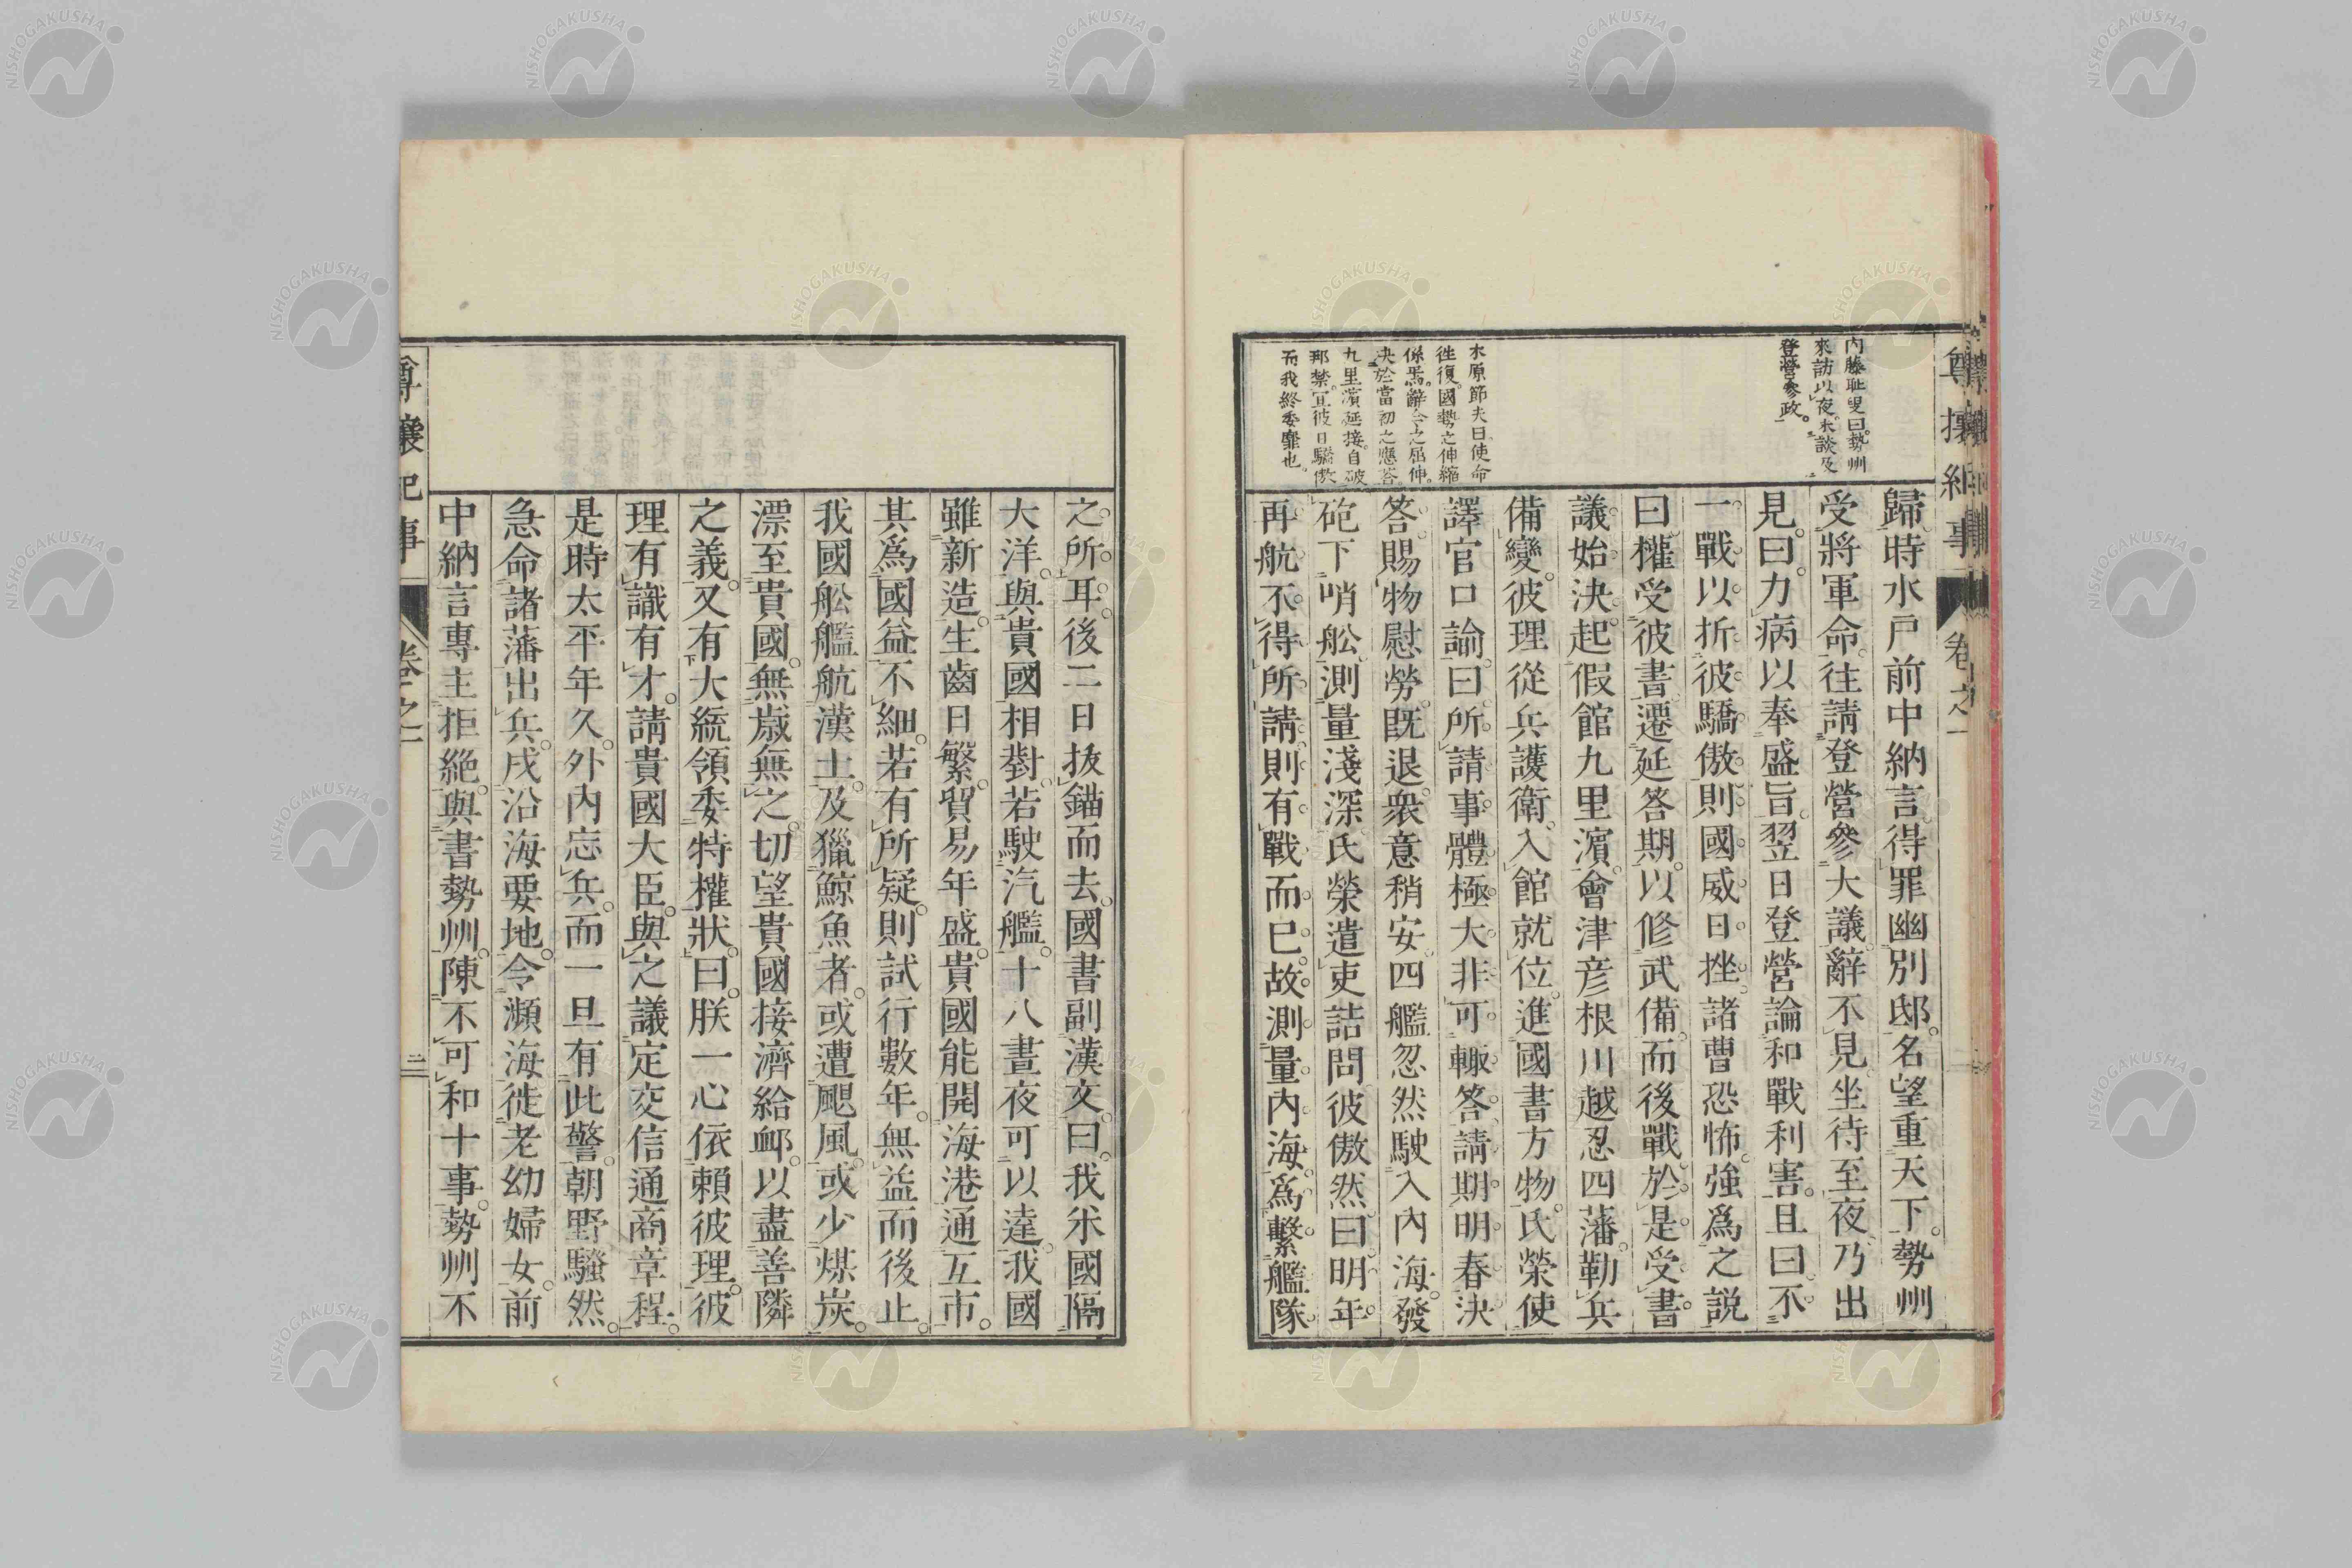 尊攘紀事
卷之一
內藤耻叟曰。勢州
來訪以夜。未談及
登營參政。
木原節夫曰使命
往復。國勢之伸縮
係焉。辭令之屈伸。
決於當初之應答
九里濱延接。自破
那禁。宜彼日驕傲
而我終委靡也。
歸。時水戶前中納言。得罪幽別邸。名望重天下。勢州
受將軍命。往請登營參大議。辭不見。坐待至夜。乃出
見。曰。力病以奉盛旨。翌日登營。論和戰利害。且曰。不
一戰以折彼驕傲。則國威日挫。諸曹恐怖。強爲之說
曰。權受彼書。遷延答期。以修武備。而後戰。於是受書
議始決。起假館九里濱。會津彥根川越忍四藩。勒兵
備變。彼理從兵護衛。入館就位。進國書方物。氏榮使
譯官口諭曰。所請事體極大。非可輙答。請期明春決
答。賜物慰勞。既退。衆意稍安。四艦忽然駛入內海。發
砲下哨舩。測量淺深。氏榮遣吏詰問。彼傲然曰。明年
再航。不得所請。則有戰而已。故測量內海。爲繫艦隊
之所耳。後二日拔錨而去。國書副漢文。曰。我米國隔
大洋。與貴國相對。若駛汽艦。十八晝夜可以達。我國
雖新造。生齒日繁。貿易年盛。貴國能開海港。通互市。
其爲國益不細。若有所疑。則試行數年。無益而後止。
我國舩艦航漢土。及獵鯨魚者。或遭颶風。或少煤炭。
漂至貴國。無歲無之。切望貴國接濟給衈。以盡善隣
之義。又有大統領委特權狀。曰。朕一心依賴彼理。彼
理有識有才。請貴國大臣。與之議定交信通商章程。
是時太平年久。外內忘兵。而一旦有此警。朝野騷然。
急命諸藩出兵。戍沿海要地。令瀕海徙老幼婦女。前
中納言專主拒絶。與書勢州。陳不可和十事。勢州不
尊攘紀事
卷之一
二